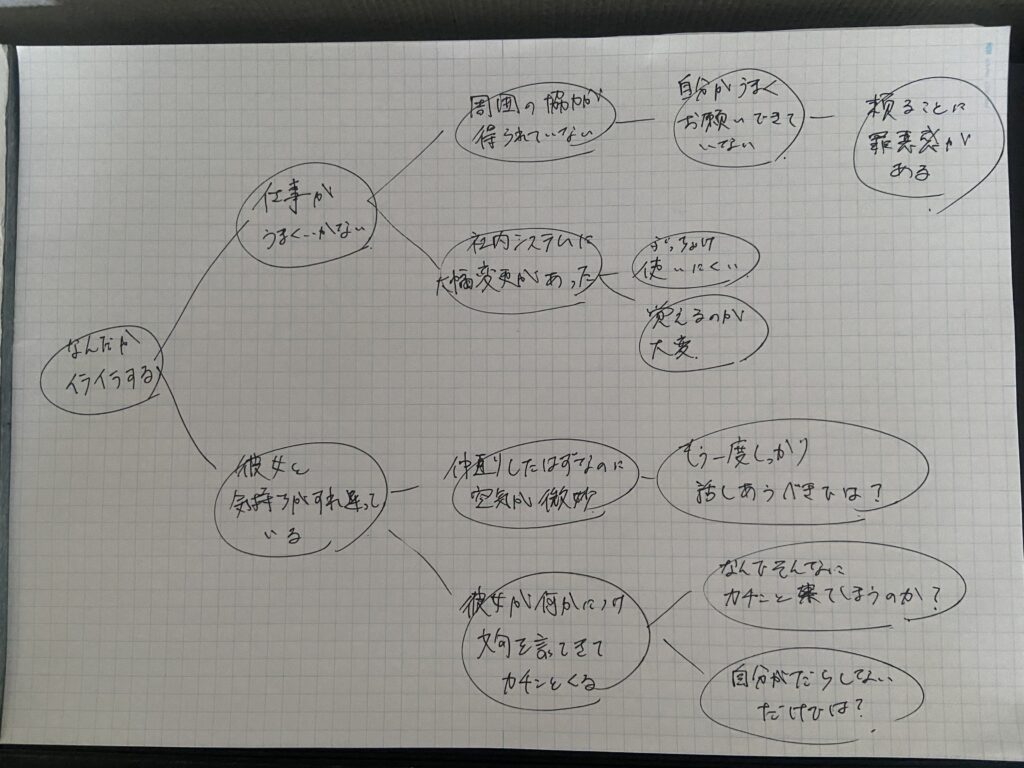 なんだか
イライラする
仕事が
うまくいかない
周囲の協力が
得られていない
自分がうまく
お願いできて
いてない
頼ることに
罪悪感が
ある
社内システムに
大幅変更があった
ぶっちゃけ
使いにくい
覚えるのが
大変
彼女と
気持ちがすれ違って
いる
仲直りしたはずなのに
空気が微妙
もう一度しっかり
話しあうべきでは?
彼女が何かにつけ
文句を言ってきて
カチンとくる
なんでそんなに
カチンと来てしまうのか?
自分がだらしない
だけでは?